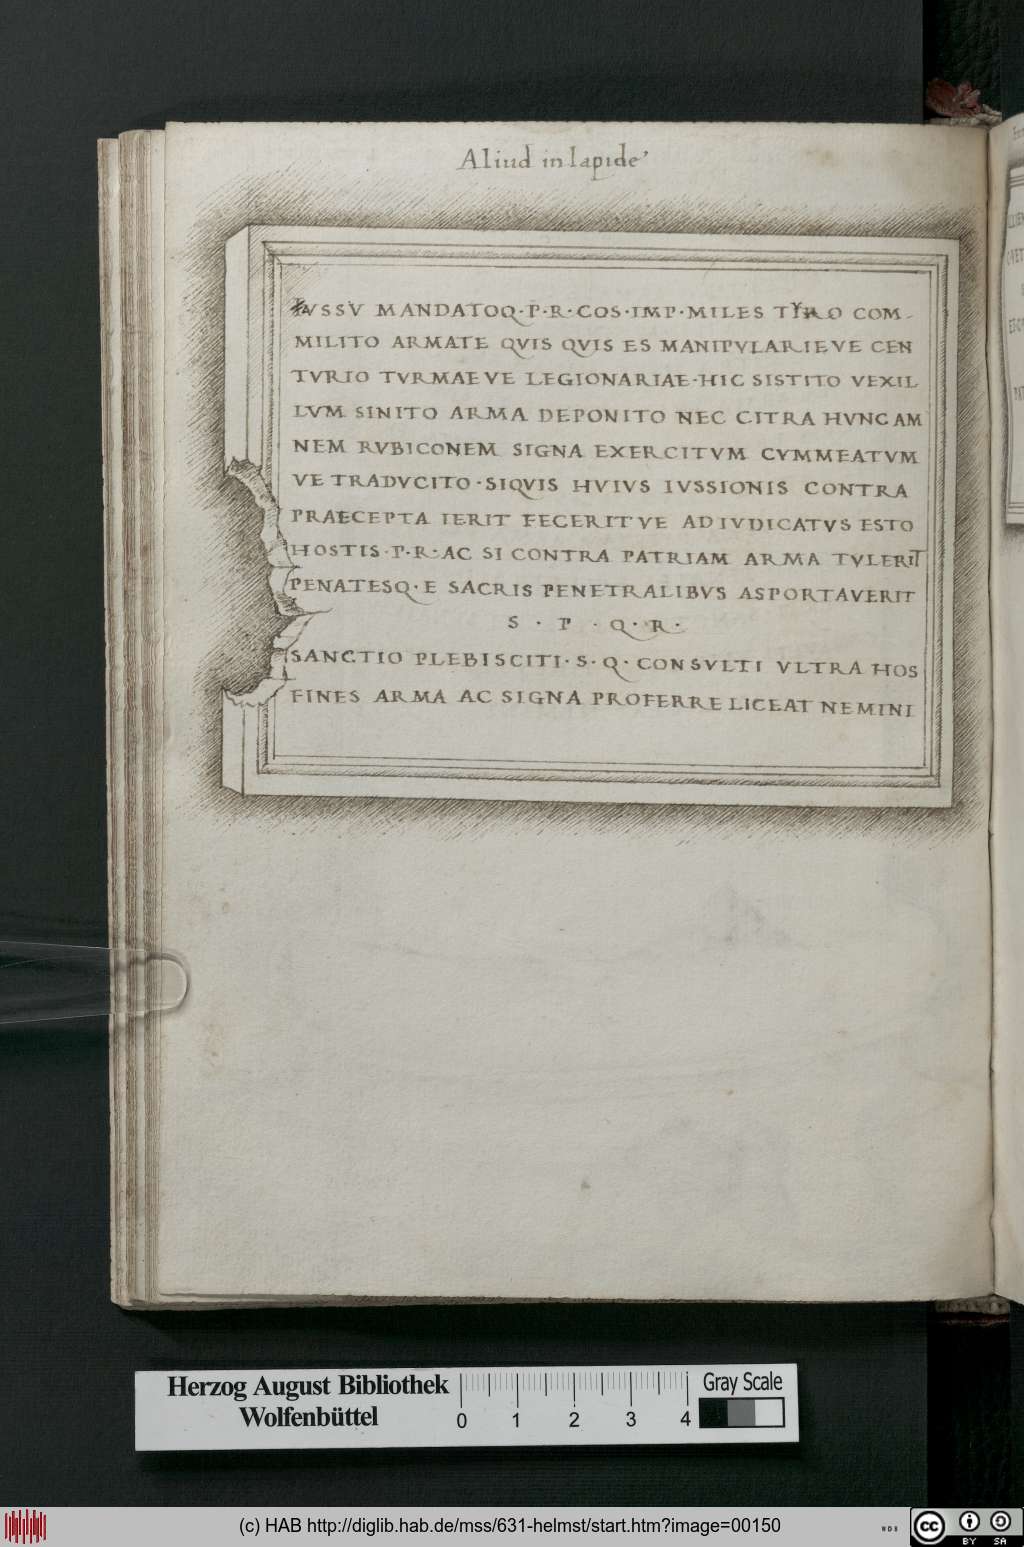 Aliud in lapide
IVSSV MANDATOQ·P·R·COS·IMP·MILES TYRO COM-
MILITO ARMATE QVIS QVIS ES MANIPVLARIEVE CEN
TVRIO TVRMAEVE LEGIONARIAE·HIC SISTITO VEXIL
LVM SINITO ARMA DEPONITO NEC CITRA HVNC AM
NEM RVBICONEM SIGNA EXERCITVM CVMMEATVM
VE TRADVCITO·SIQVIS HVIVS IVSSIONIS CONTRA
PRAECEPTA IERIT FECERITVE ADIVDICATVS ESTO
HOSTIS·P·R·AC SI CONTRA PATRIAM ARMA TVLERIT
PENATESQ·E SACRIS PENETRALIBVS ASPORTAVERIT
S · P · Q · R ·
SANCTIO PLEBISCITI·S·Q·CONSVLTI VLTRA HOS
FINES ARMA AC SIGNA PROFERRE LICEAT NEMINI
Herzog August Bibliothek
Wolfenbüttel
0 1 2 3 4
Gray Scale
(c) HAB http://diglib.hab.de/mss/631-helmst/start.htm?image=00150
WDB
CC BY SA